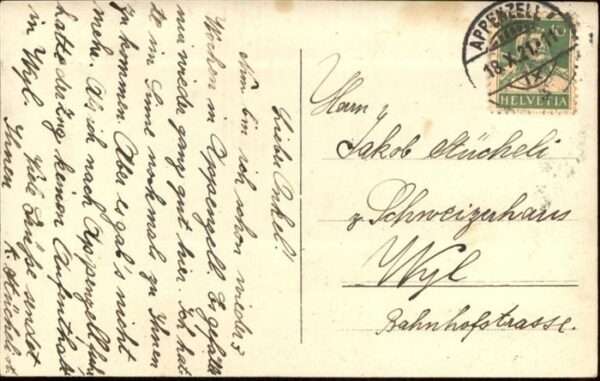 Lieber Onkel!
Nun bin ich schon wieder 3
Wochen in Appenzell. Es gefällt
mir wieder ganz gut hier. Ich hat
te im Sinne nochmals zu Ihnen
zu kommen. Aber es gab's nicht
mehr. Als ich nach Appenzell fuhr
hatte der Zug keinen Aufenthalt
in Wyl. Viele Grüße sendet
Ihnen
APPENZELL
18.X.21
HELVETIA
Herrn
Jakob Stücheli
z. Schweizerhaus
Wyl
Bahnhofstrasse.